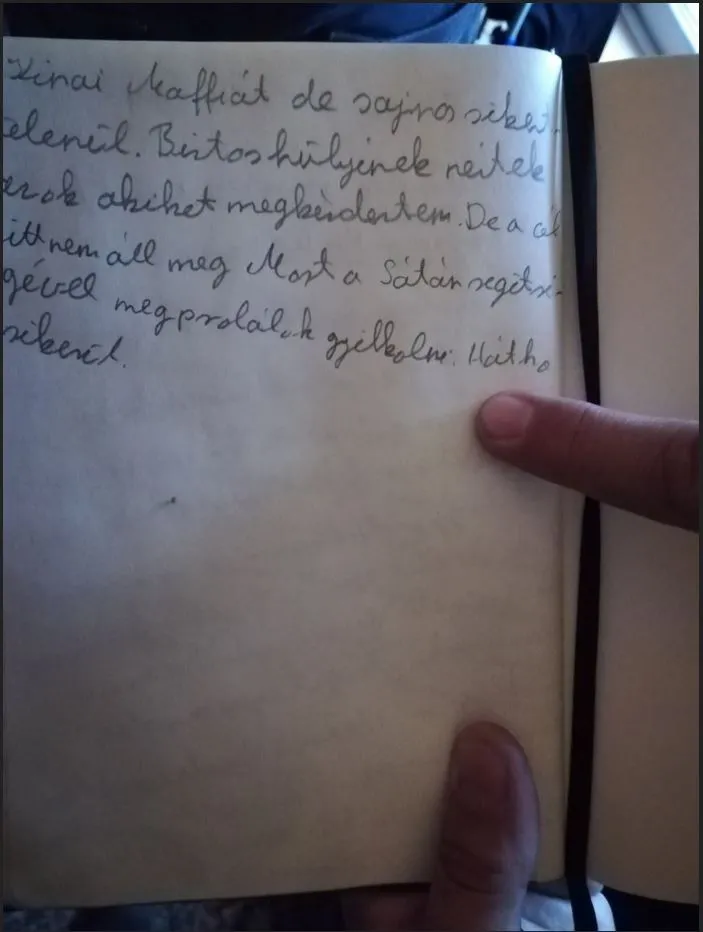 Kinai Maffiát de sajnos siker-
telenül. Biztos hülyének néztek
azok akiket megkérdeztem. De a cél
itt nem áll meg Most a Sátán segítsé-
gével megprolálok gyilkolni. Hátha
sikerül.